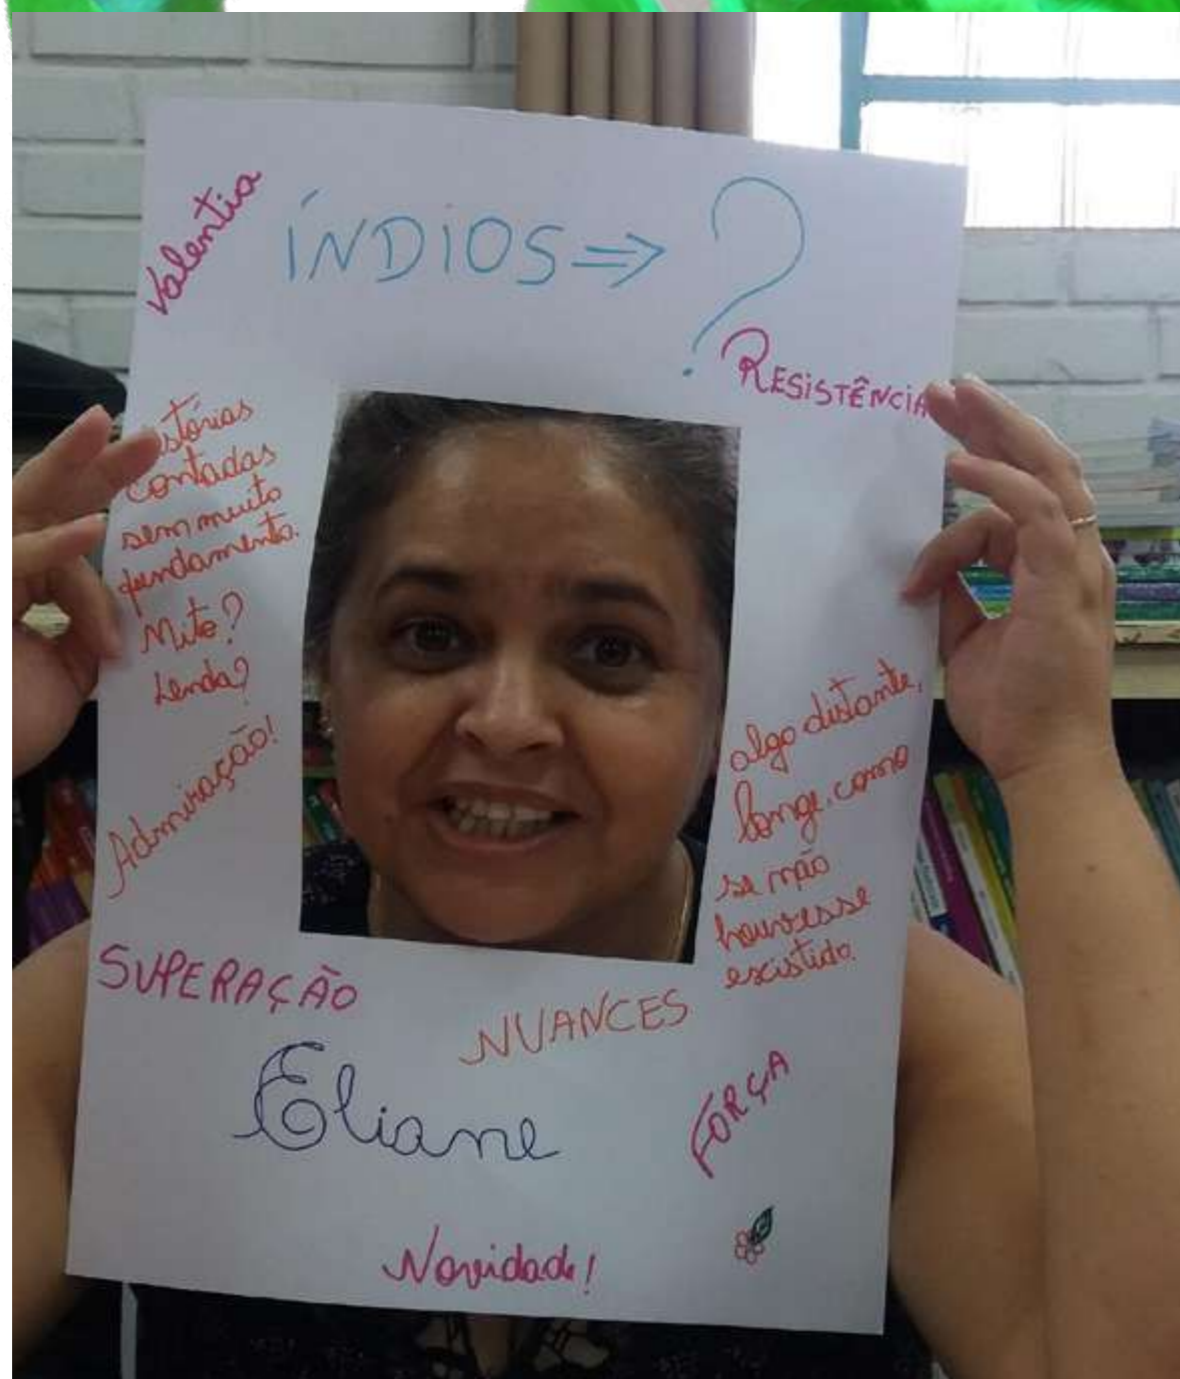 Valentia
ÍNDIOS ⇒ ?
RESISTÊNCIA
stórias
contadas
sem muito
fundamento.
Mito?
Lenda?
Admiração!
algo distante,
longe, como
se não
houvesse
existido.
SUPERAÇÃO
NUANCES
Eliane
FORÇA
Novidade!